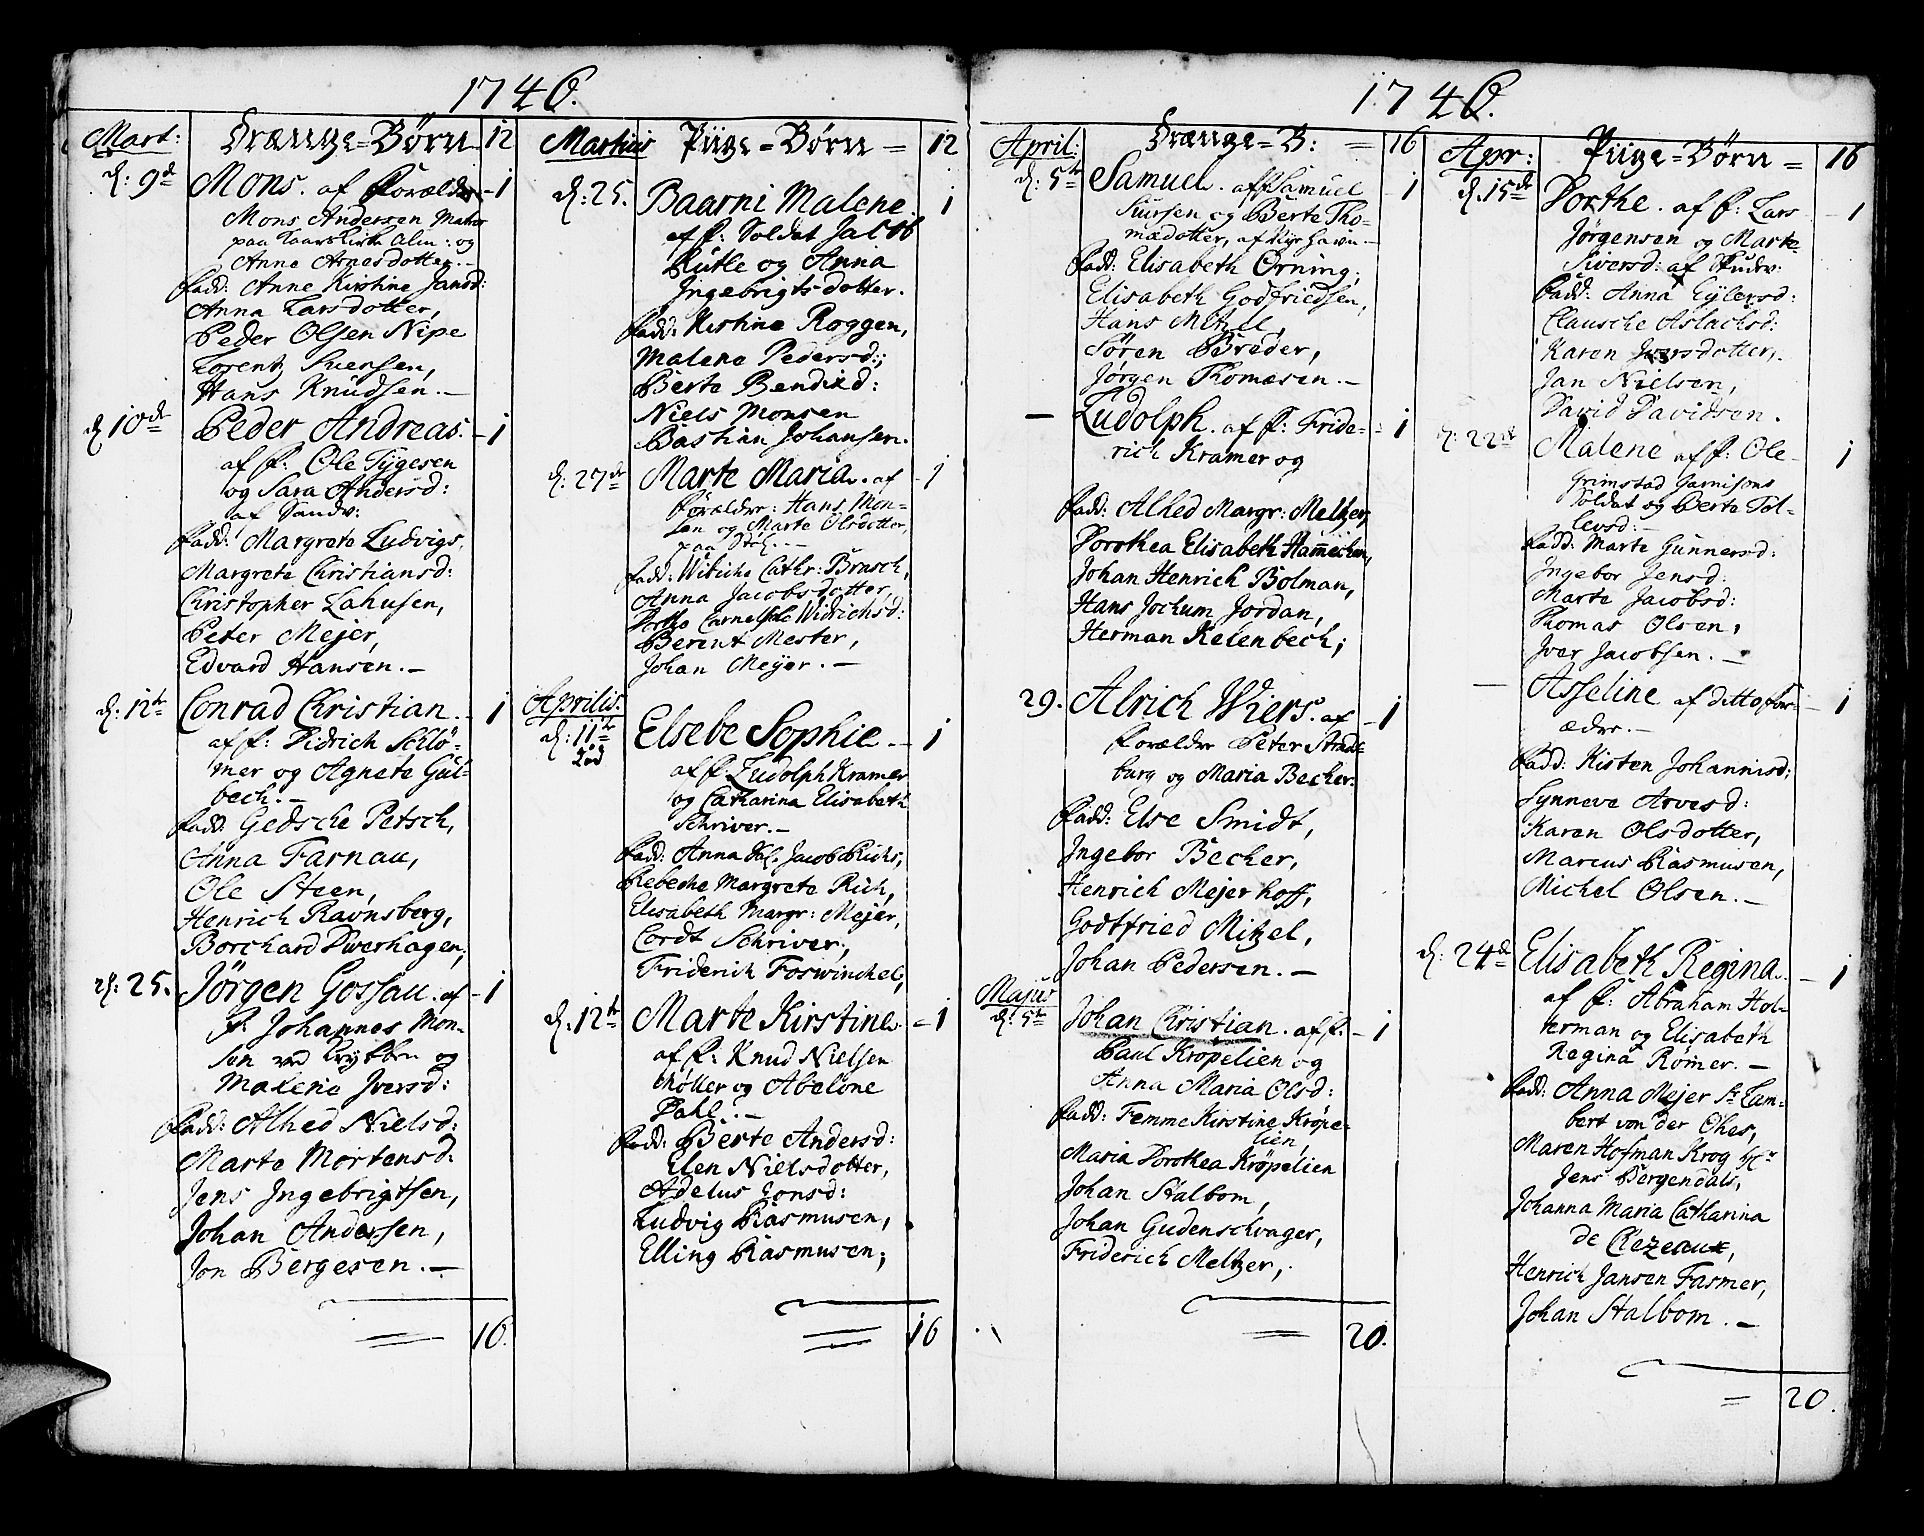 1746.
Mart: Drænge-Børn 12
d: 9de Mons. af Forældre - 1
Mons Andersen
paa Kaarskirke Alm: og
Anne Arnesdotter. -
fadd: Anne Kirstine Jansd:
Anna Larsdotter,
Peder Olsen Nipe
Lorentz Iversen,
Hans Knudsen. -
d 10de Peder Andreas. - 1
af f: Ole Tygesen
og Sara Andersd:
af Sandv:
fadd: Margrete Ludvigs,
Margrete Christiansd:
Christopher Lahusen,
Peter Mejer,
Edvard Hansen. -
d: 12te Conrad Christian. - 1
af f: Didrich Schlö-
mer og Agnete Gül-
bech. -
fadd: Gedsche Petsch,
Anna Farnau,
Ole Steen,
Henrich Ravnsberg,
Borchard Dverhagen;
d: 25. Jørgen Gossau. af - 1
f: Johannes Mon-
sen ved Krybben og
Malene Iversd:
fadd: Alhed Nielsd:
Marte Mortensd:
Jens Ingebrigtsen,
Johan Andersen,
Jon Børgesen. -
16.
Martius Piige-Børn - 12
d: 25. Baarni Malene. 1
af f: Soldat Jacob
Rutle og Anna
Ingebrigtsdotter.
fadd: Kistine Roggen,
Malene Pedersd:;
Berte Bendixd:
Niels Monsen
Bastian Johansen.
d: 27de Marte Maria. af - 1
forældre: Hans Mon-
sen og Marte Olsdotter,
paa
fadd: Wibiche Cathr: Brasch,
Anna Jacobsdotter,
Widrichsd:
Berent Mester,
Johan Meyer. -
Aprilis.
d: 11te Elsebe Sophie. - 1
af f. Ludolph Kramer
og Catharina Elisabeth
Schriver. -
fadd: Anna Jacob Richs,
Rebeche Margrete Rich,
Elisabeth Margr: Mejer,
Cordt Schriver,
Friderich Foswinchel,
d: 12te Marte Kirstine. - 1
af f: Knud Nielsen
Møller og Abelone
Dahl. -
fadd: Berte Andersd:
Elen Nielsdotter,
Adelus Jonsd:
Ludvig Rasmusen,
Elling Rasmusen;
16
1746.
April: Drænge-B: = 16
d: 5te Samuel. af f Samuel - 1
Siursen og Berte Tho-
mædotter, af Nyr Havn -
fadd: Elisabeth Ørning,
Elisabeth Godfriedsen,
Hans Mitzel,
Søren Breder,
Jørgen Thomæsen. -
- Ludolph. af f: Fride- - 1
rich Kramer og
fadd: Alhed Margr: Meltzer,
Dorothea Elisabeth Hammechen,
Johan Henrich Bolman,
Hans Jochum Jordan,
Herman Kelenbech;
29. Alrich Wiers. af - 1
forældre Peter Stade
burg og Maria Becher.
fadd: Else Smidt,
Ingebor Becher,
Henrich Mejerhoff,
Godtfried Mitzel,
Johan Pedersen. -
Majus
d: 5te Johan Christian. af f: - 1
Paul Kröpelien og
Anna Maria Olsd:
fadd: Femme Kirstine Kröpe-
lien,
Maria Dorothea Kröpelien
Johan Stalbom,
Johan Gudenschvager,
Friderich Meltzer,
20.
Apr: Piige-Børn = 16
d. 15de Dorthe. af f: Lars - 1
Jørgensen og Marte
Siversd: af Skudev:
fadd: Anna Eylersd:
Clausche Aslachsd:
Karen Iversdotter,
Jan Nielsen,
David Davidsen.
d: 22de Malene af f: Ole - 1
Grimstad Garnisons
Soldat og Berte Tol-
levsd: -
fadd: Marte Gunnersd:
Ingebor Jensd:
Marte Jacobsd:
Thomas Olsen,
Iver Jacobsen. -
- Asseline af ditto for- - 1
ældre. -
fadd: Kisten Johannisd:
Synneve Arvesd:
Karen Olsdotter,
Marcus Rasmusen,
Michel Olsen. -
d: 24de Elisabeth Regina. - 1
af f: Abraham Hol-
terman og Elisabeth
Regina Römer. -
fadd: Anna Mejer Sr Lam-
bert von der Ohes,
Maren Hofman Krog Hr
Jens Bergendals,
Johanna Maria Catharina
de Crezeaux,
Henrich Jansen Fasmer,
Johan Stalbom. -
20.